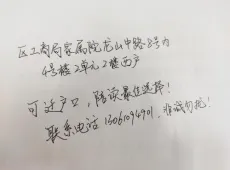 区工商局家属院龙山中路8号为
4号楼2单元2楼西户
可迁户口，陪读最佳选择！
联系电话13061094901，非诚勿扰！